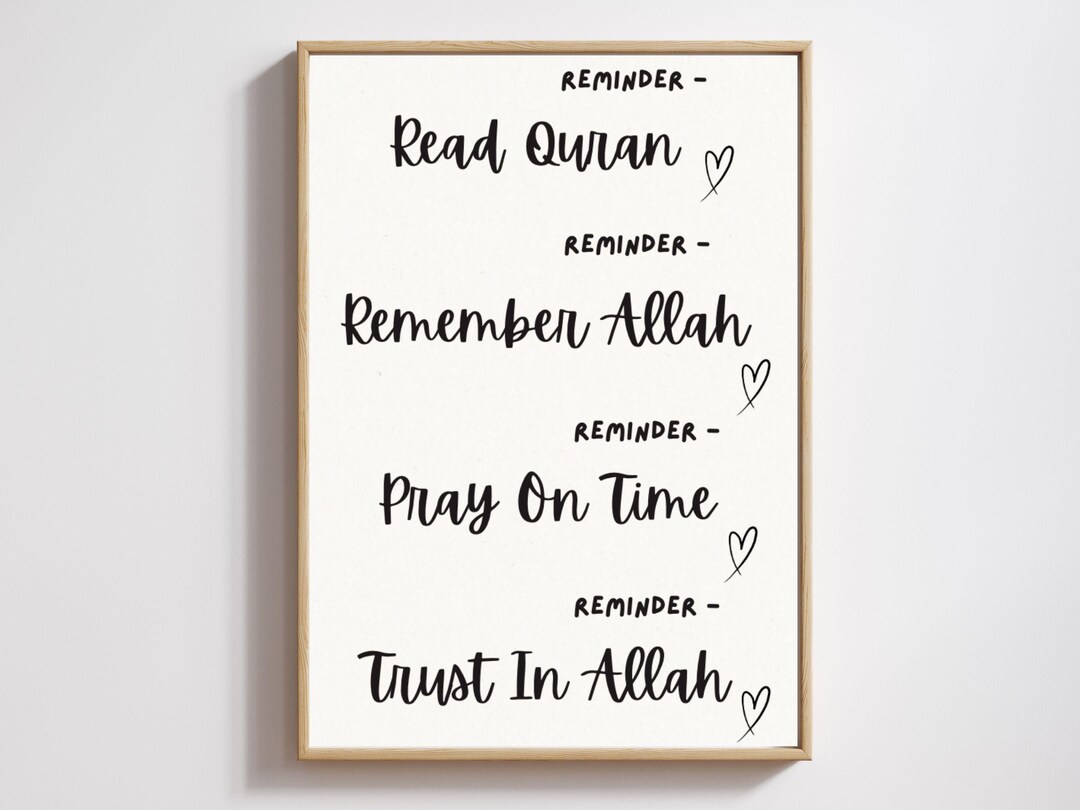 REMINDER -
Read Quran
REMINDER -
Remember Allah
REMINDER -
Pray On Time
REMINDER -
Trust In Allah